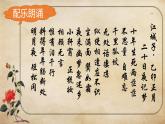 配乐朗诵
江城子·乙卯正月
二十日夜记梦
十年生死两茫茫
不思量 自难忘
千里孤坟 无处话凄凉
纵使相逢应不识
尘满面 鬓如霜
夜来幽梦忽还乡
小轩窗 正梳妆
相顾无言 惟有泪千行
料得年年肠断处
明月夜 短松冈